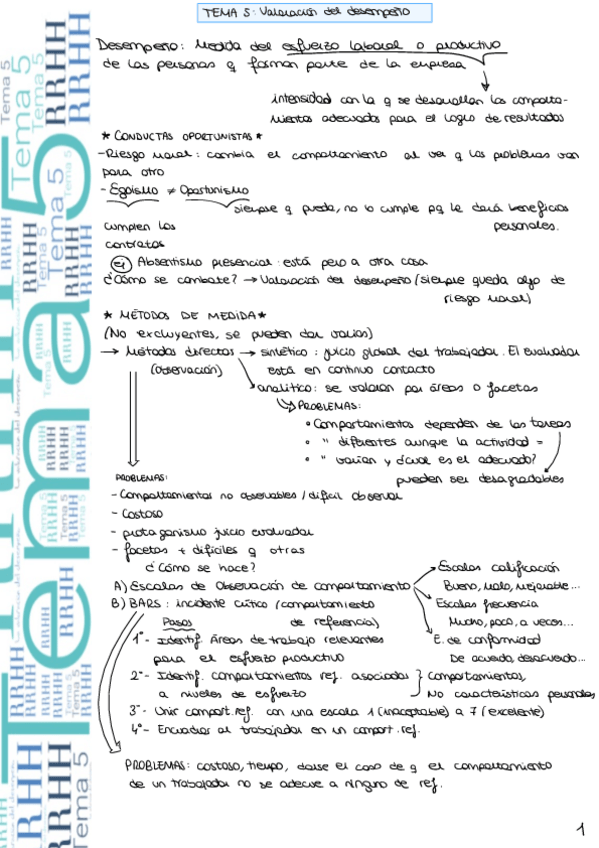 TEMA 5: Valoración del desempeño
Desempeño: Medida del esfuerzo laboral o productivo
de las personas q forman parte de la empresa
intensidad con la q se desarrollan los comporta-
mientos adecuados para el logro de resultados
* CONDUCTAS OPORTUNISTAS *
- Riesgo moral: cambia el comportamiento al ver q los problemas van
para otro
- Egoísmo ≠ Oportunismo
siempre q pueda, no lo cumple pq le dará beneficios
personales.
cumplen los
contratos
ej Absentismo presencial: está pero a otra cosa
¿Cómo se combate? → Valoración del desempeño (siempre queda algo de
riesgo moral)
* MÉTODOS DE MEDIDA *
(No excluyentes, se pueden dar varios)
→ Métodos directos → sintético: juicio global del trabajador. El evaluador
(observación) está en continuo contacto
analítico: se valoran por áreas o facetas
PROBLEMAS:
• Comportamientos dependen de las tareas
• " diferentes aunque la actividad =
• " varían y ¿cuál es el adecuado?
pueden ser desagradables
PROBLEMAS:
- Comportamientos no observables / difícil observar
- Costoso
- protagonismo juicio evaluador
- facetas + difíciles q otras
¿Cómo se hace?
A) Escalas de Observación de comportamiento
Escalas calificación
Bueno, malo, mejorable...
Escalas frecuencia
Mucho, poco, a veces...
E. de conformidad
De acuerdo, desacuerdo...
B) BARS: incidente crítico (comportamiento
de referencia)
Pasos
1º- Identif. Áreas de trabajo relevantes
para el esfuerzo productivo
2º- Identif. comportamientos ref. asociados } Comportamientos,
a niveles de esfuerzo No características personales
3º- Unir comport. ref. con una escala 1 (inaceptable) a 7 (excelente)
4º- Encuadrar al trabajador en un comport. ref.
PROBLEMAS: costoso, tiempo, darse el caso de q el comportamiento
de un trabajador no se adecue a ninguno de ref.
1
Tema 5
RRHH